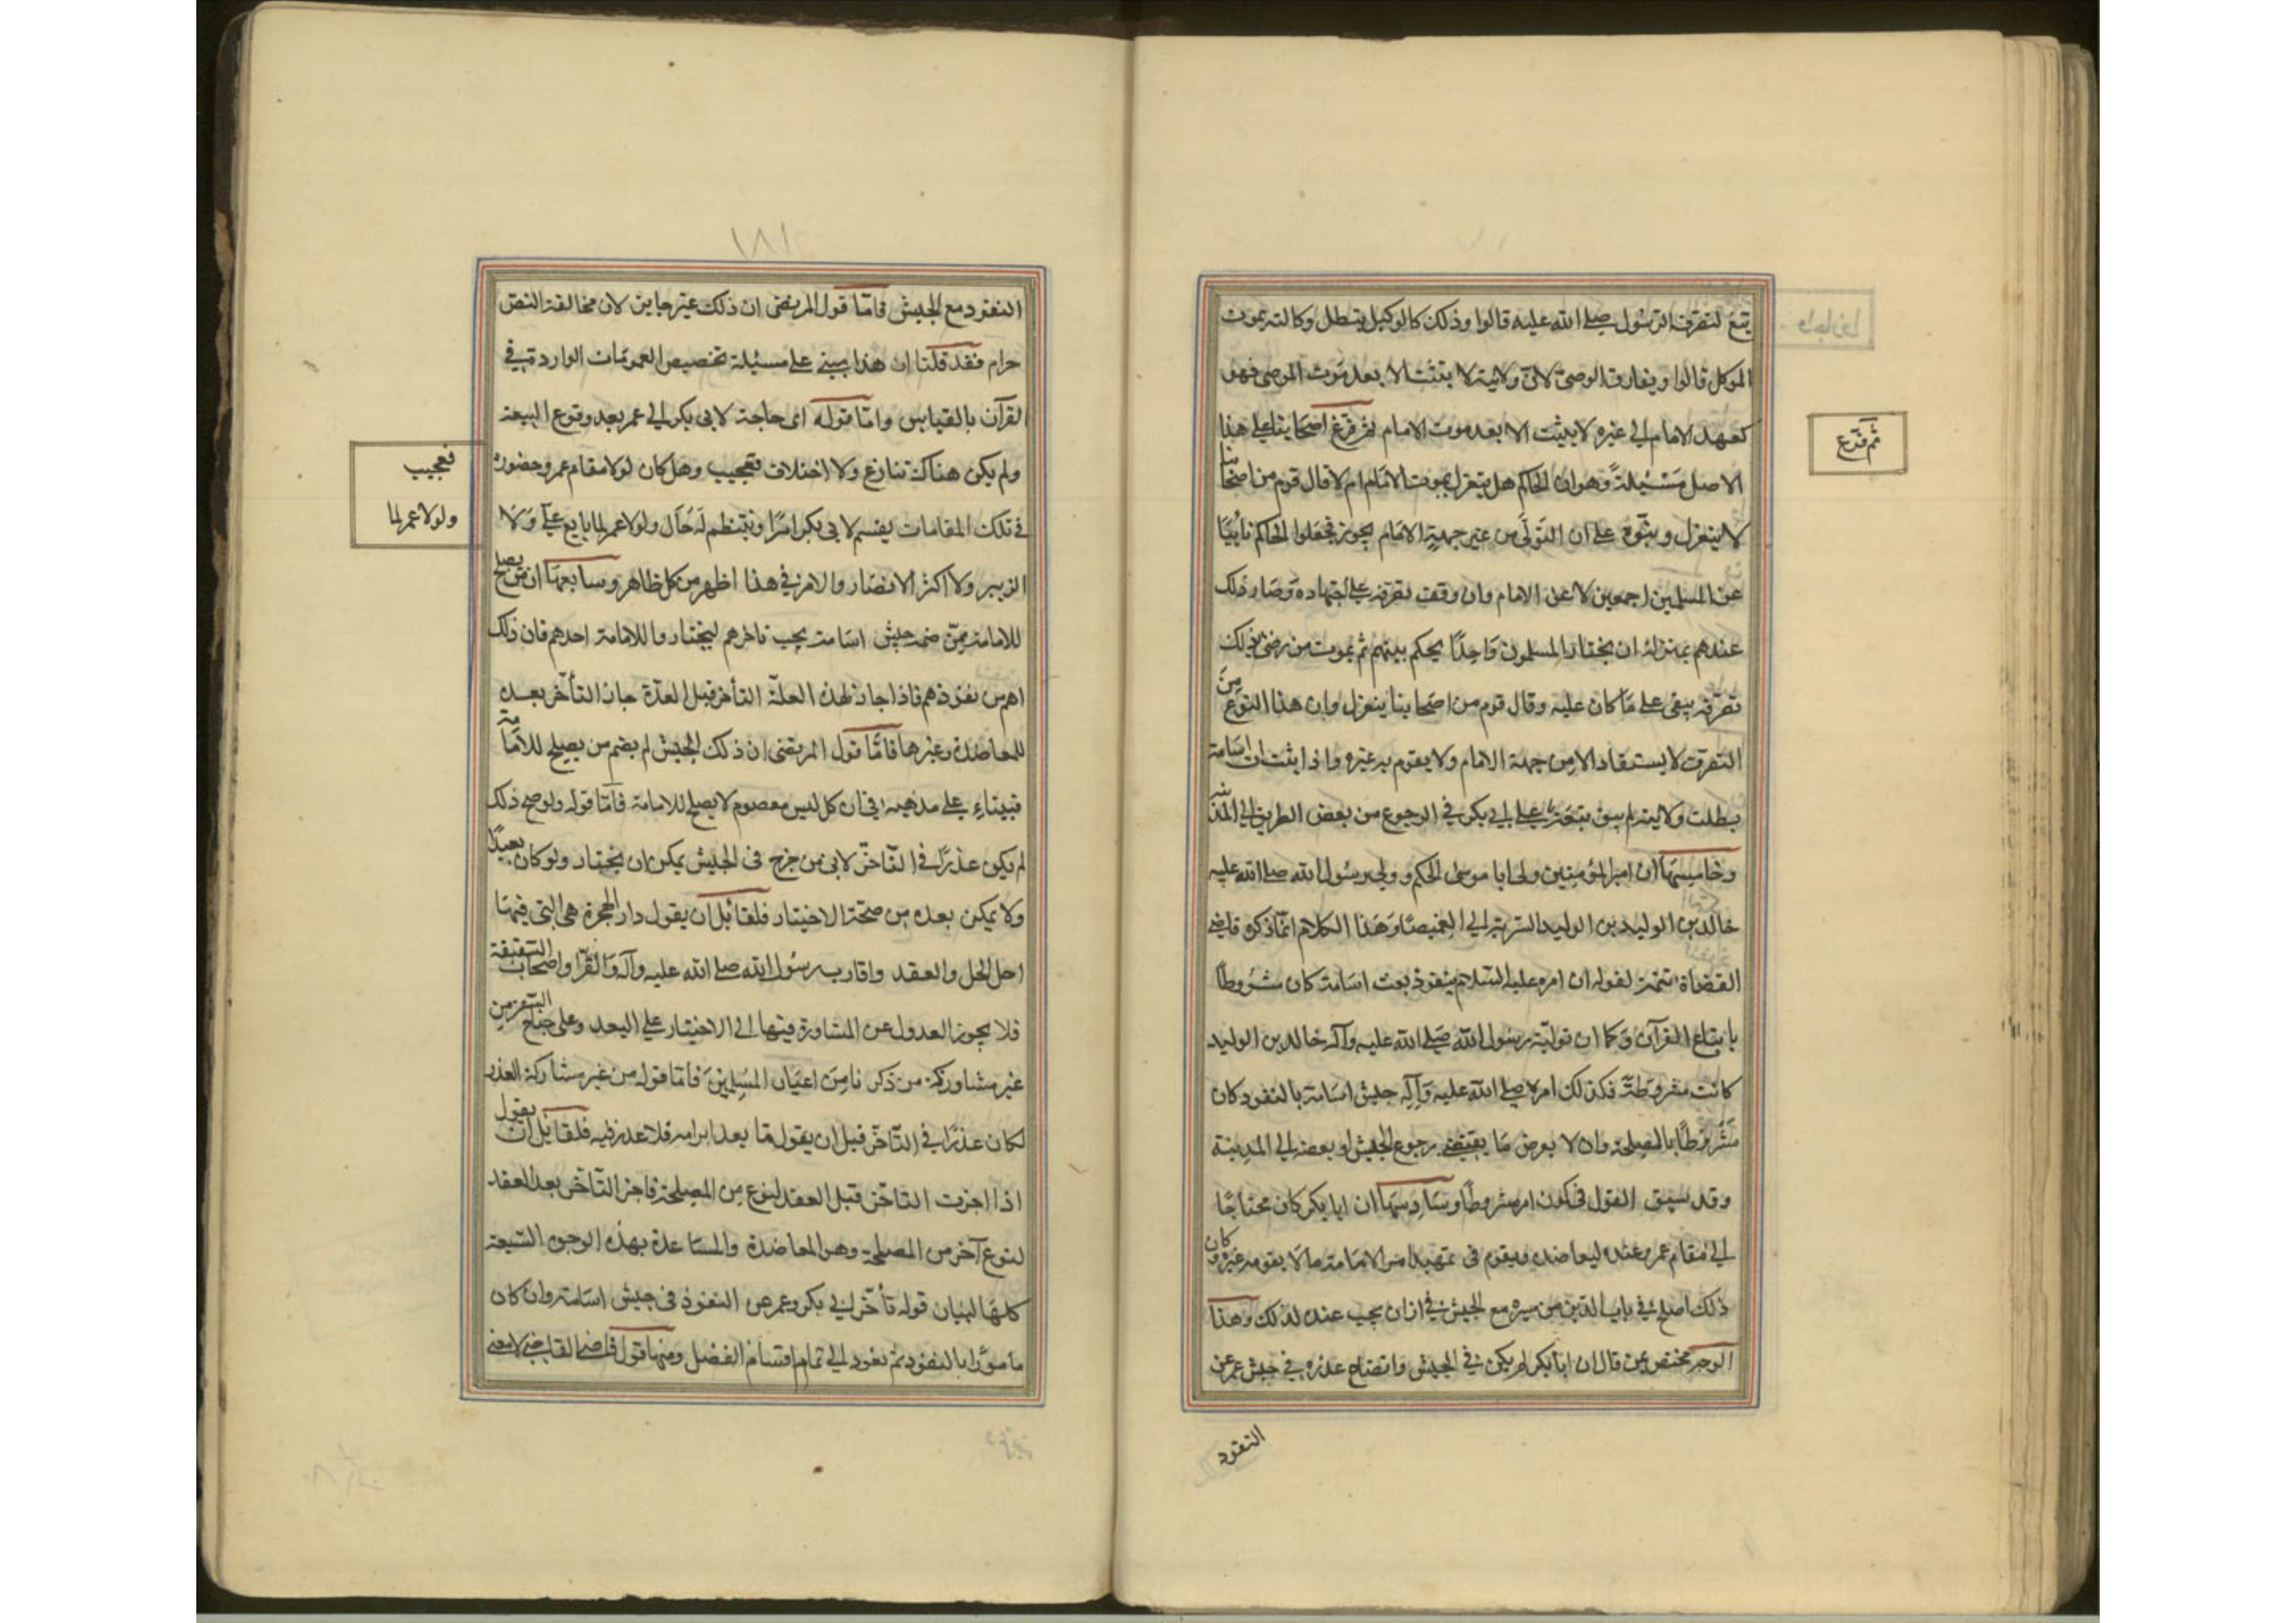 يتبع لتصرف الرسول صلى الله عليه قالوا وذلك كالوكيل يبطل وكالته بموت
الموكل قالوا ويفارق الوصىّ لانّ ولايته لا يثبت الا بعد موت الموصى فهو
كعهد الامام الى غيره لا يثبت الا بعد موت الامام ثم فرّع اصحابنا على هذا
ثم فرّع
الاصل مسئيلةً وهو ان الحاكم هل ينعزل بموت الامام ام لا قال قوم من اصحابنا
لا ينعزل وبنوه على ان التولّى من غير جهة الامام يجوز فجعلوا الحاكم نائبًا
عن المسلمين اجمعين لا عن الامام وان وقف تصرفه على اجتهاده وصار ذلك
عندهم بمنزلة ان يختار المسلمون واحدًا يحكم بينهم ثم يموت من رضى بذلك
تصرفه يبقى على ما كان عليه وقال قوم من اصحابنا ينعزل وان هذا النوع من
التصرف لا يستفاد الا من جهة الامام ولا يقوم به غيره واذا ثبت ان اسامة
بطلت ولايته لم يبق تبعة على ابى بكر فى الرجوع من بعض الطريق الى المدينة
وخامسها ان امير المؤمنين ولى ابا موسى الحكم وولى رسول الله صلى الله عليه
خالد بن الوليد بن الوليد السرية الى الغميصا وهذا الكلام انما ذكره قاضى
القضاة تتمة لقوله ان امره عليه السلام بنفوذ بعث اسامة كان مشروطًا
باتباع القرآن وكما ان تولية رسول الله صلى الله عليه وآله خالد بن الوليد
كانت مشروطةً فكذلك امره صلى الله عليه وآله جيش اسامة بالنفوذ كان
مشروطًا بالمصلحة وان لا يعرض ما يقتضى رجوع الجيش او بعضه الى المدينة
وقد سبق القول فى كون امر مشروطًا وسادسها ان ابا بكر كان محتاجًا
الى مقام عمر عنده ليعاضده ويقوم فى تمهيد امر الامامة ما لا يقوم به غيره وكان
ذلك اصلح فى باب الدين من ميره مع الجيش فجاز ان يحب عنده لذلك وهذا
الوجه مختص بمن قال ان ابا بكر لم يكن فى الجيش وايضاح عذره فى حبس عمر عن
النفود
١٨١
النفود مع الجيش فامّا قول المرتضى ان ذلك غير جايز لان مخالفة النص
حرام فقد قلنا ان هذا يبنى على مسئلة تخصيص العمومات الواردة فى
القرآن بالقياس وامّا قوله اى حاجة لابى بكر الى عمر بعد وقوع البيعة
ولم يكن هناك تنازع ولا اختلاف فعجيب وهل كان لولا مقام عمر وحضوره
فعجيب
فى تلك المقامات يتم لابى بكر امرًا وينتظم له حال ولولا عمر لما بايع علىّ ولا
ولولا عمر لما
الزبير ولا اكثر الانصار والامر فى هذا اظهر من كل ظاهر وسابعها ان من يصلح
للامامة ممّن ضمه جيش اسامة يجب تاخرهم ليختاروا للامامة احدهم فان ذلك
اهم من نفوذهم فاذا جاز لهذه العلة التأخر قبل العقد جاز التأخر بعده
للمعاضدة وغيرها فامّا قول المرتضى ان ذلك الجيش لم يضم من يصلح للامامة
فبناء على مذهبه فى ان كل ليس معصوم لا يصلح للامامة فامّا قوله ولو صح ذلك
لم يكن عذرًا فى التأخر لانّ من خرج فى الجيش يمكن ان يختار ولو كان بعيدًا
ولا يمكن بعده من صحة الاختيار فلقائل ان يقول دار الهجرة هى التى فيها
اهل الحل والعقد واقارب رسول الله صلى الله عليه وآله والقرّاء واصحاب السقيفة
فلا يجوز العدول عن المشاورة فيها الى الاختيار على البعد وعلى جناح السفر من
غير مشاركة من ذكرنا من اعيان المسلمين فامّا قوله من غير مشاركة العذر
لكان عذرًا فى التأخر قبل ان يقول ما بعد ابرامه فلا عذر فيه فلقائل ان يقول
اذا اجزت التاخر قبل العقد لنوع من المصلحة فاجز التأخر بعد العقد
لنوع آخر من المصلحة وهو المعاضدة والمساعدة بهذه الوجوه السبعة
كلها لبيان قوله تأخر ابى بكر وعمر عن النفوذ فى جيش اسامة وان كان
مأمورًا بالنفود ثم نعود الى تمام اقسام الفصل ومنها قول قاضى القضاة لا معنى